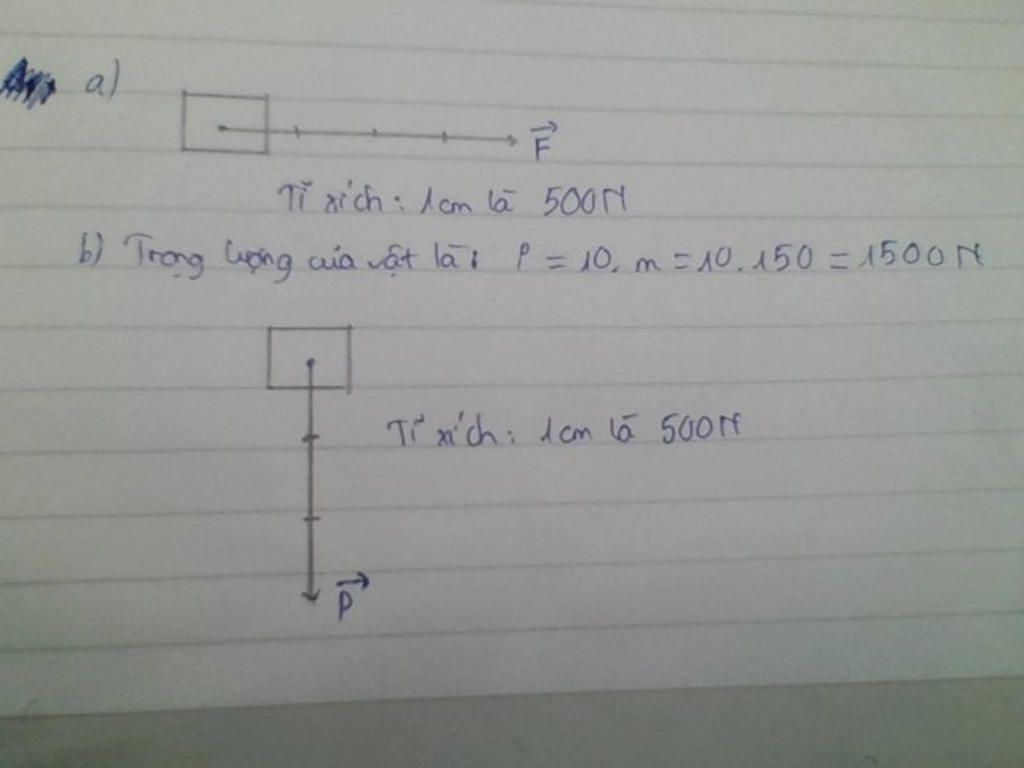 a)
F
Tỉ xích: 1cm là 500N
b) Trọng lượng của vật là: P = 10. m = 10. 150 = 1500N
Tỉ xích: 1cm là 500N
P